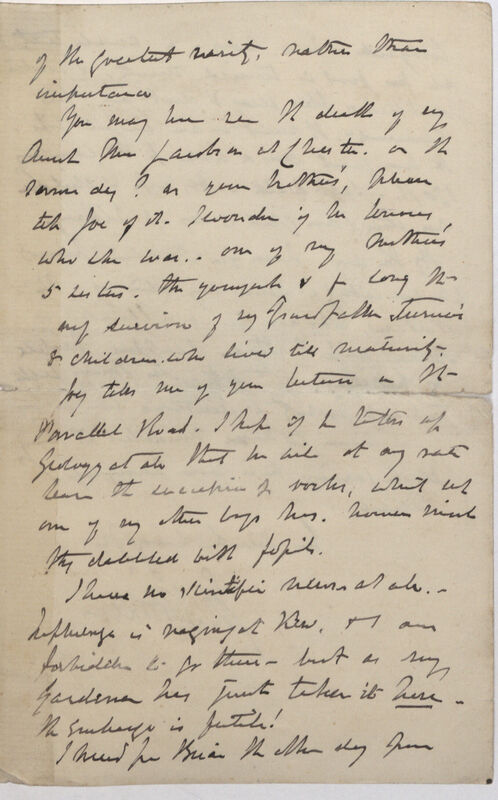 of the greatest rarity, rather than
importance
You may have seen the death of my
Aunt Mrs Jacobson at Chester. on the
same day? as your brother's, please
tell Joe of it. I wonder if he knows
who she was.. one of my mother's
5 sisters. the youngest & for long the
only survivor of my Grandfather Turner's
8 children who lived till maturity.
Joey tells me of your lecture on the
Parallel Road. I hope if he takes up
Geology at all that he will at any rate
learn the of rocks, which not
one of my other boys has. however much
they dabbled with fossils.
I have no scientific news at all. -
Influenza is raging at Kew. & I am
forbidden to go there - but as my
Gardener has just taken it here -
the Embargo is futile!
I heard fr Brian the other day from